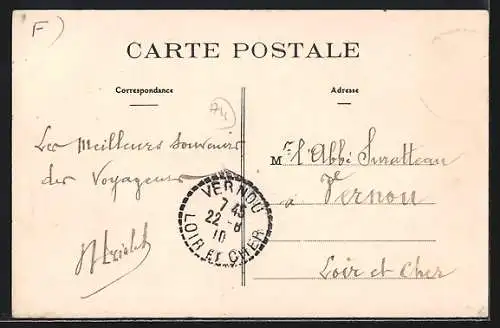 F)
CARTE POSTALE
Correspondance
Adresse
Les Meilleurs Souvenirs
des Voyageurs
Mr. l'Abbé
à Vernou
Loir et Cher
VERNOU
7 45
22 - 8
10
LOIR ET CHER